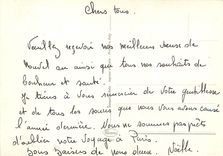 Chers tous.
Veuillez recevoir nos meilleurs vœux de
Nouvel an ainsi que tous nos souhaits de
bonheur et santé.
Je tiens à vous remercier de votre gentillesse
et de tous les soucis que nous vous avons causé
l'année dernière. Nous ne sommes pas prêts
d'oublier notre voyage à Paris.
Bons baisers de nous deux.